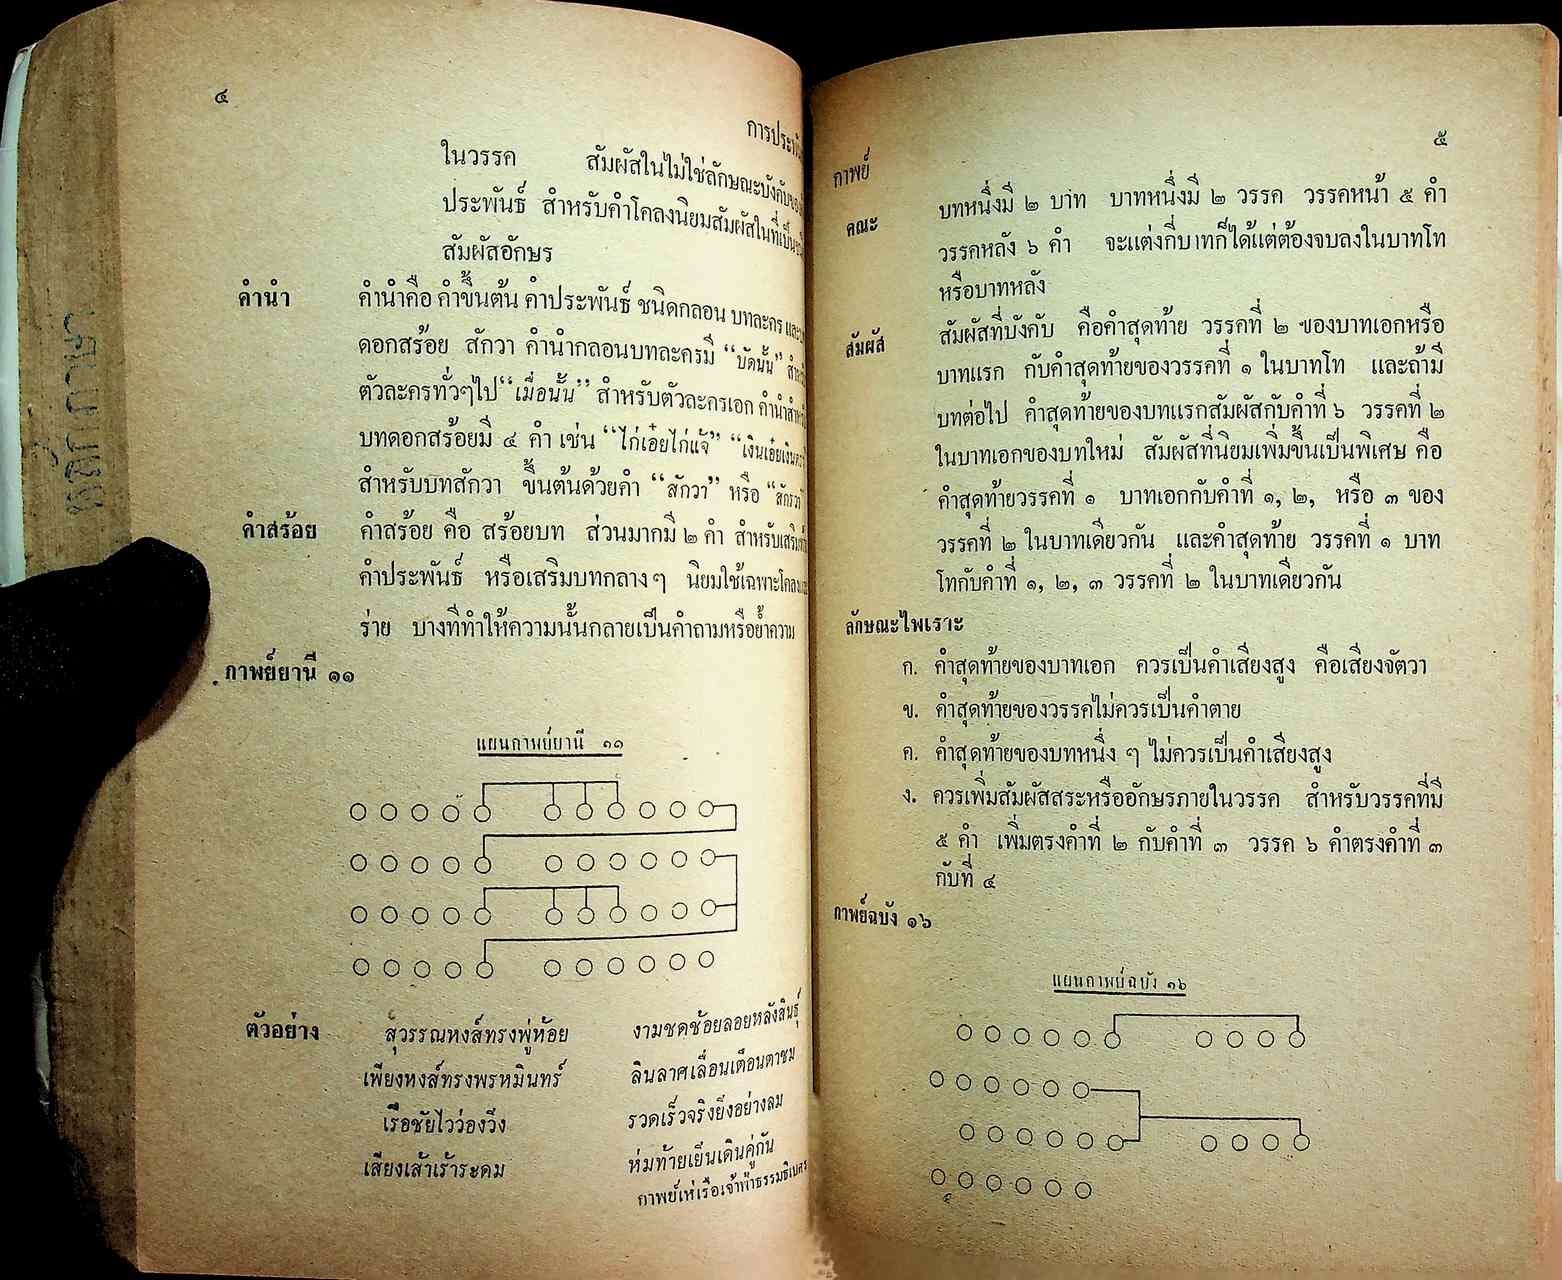 ๔
ในวรรค สัมผัสในไม่ใช่ลักษณะบังคับของ
ประพันธ์ สำหรับคำโคลงนิยมสัมผัสในที่เป็น
สัมผัสอักษร
คำนำ คำนำคือ คำขึ้นต้น คำประพันธ์ ชนิดกลอน บทละคร และ
ดอกสร้อย สักวา คำนำกลอนบทละครมี “บัดนั้น”
ตัวละครทั่วๆไป “เมื่อนั้น” สำหรับตัวละครเอก คำนำสำหรับ
บทดอกสร้อยมี ๔ คำ เช่น “ไก่เอ๋ยไก่แจ้”
สำหรับบทสักวา ขึ้นต้นด้วยคำ “สักวา” หรือ
คำสร้อย คำสร้อย คือ สร้อยบท ส่วนมากมี ๒ คำ สำหรับเสริม
คำประพันธ์ หรือเสริมบทกลาง ๆ นิยมใช้เฉพาะโคลง
ร่าย บางทีทำให้ความนั้นกลายเป็นคำถามหรือย้ำความ
กาพย์ยานี ๑๑
แผนกาพย์ยานี ๑๑
ตัวอย่าง สุวรรณหงส์ทรงพู่ห้อย งามชดช้อยลอยหลังสินธุ์
เพียงหงส์ทรงพรหมินทร์ ลินลาศเลื่อนเตือนตาชม
เรือชัยไวว่องวิ่ง รวดเร็วจริงยิ่งอย่างลม
เสียงเส้าเร้าระดม ห่มท้ายเยิ่นเดินคู่กัน
กาพย์เห่เรือเจ้าฟ้าธรรมธิเบศร
๕
กาพย์
คณะ บทหนึ่งมี ๒ บาท บาทหนึ่งมี ๒ วรรค วรรคหน้า ๕ คำ
วรรคหลัง ๖ คำ จะแต่งกี่บาทก็ได้แต่ต้องจบลงในบาทโท
หรือบาทหลัง
สัมผัส สัมผัสที่บังคับ คือคำสุดท้าย วรรคที่ ๒ ของบาทเอกหรือ
บาทแรก กับคำสุดท้ายของวรรคที่ ๑ ในบาทโท และถ้ามี
บทต่อไป คำสุดท้ายของบทแรกสัมผัสกับคำที่ ๖ วรรคที่ ๒
ในบาทเอกของบทใหม่ สัมผัสที่นิยมเพิ่มขึ้นเป็นพิเศษ คือ
คำสุดท้ายวรรคที่ ๑ บาทเอกกับคำที่ ๑, ๒, หรือ ๓ ของ
วรรคที่ ๒ ในบาทเดียวกัน และคำสุดท้าย วรรคที่ ๑ บาท
โทกับคำที่ ๑, ๒, ๓ วรรคที่ ๒ ในบาทเดียวกัน
ลักษณะไพเราะ
ก. คำสุดท้ายของบาทเอก ควรเป็นคำเสียงสูง คือเสียงจัตวา
ข. คำสุดท้ายของวรรคไม่ควรเป็นคำตาย
ค. คำสุดท้ายของบทหนึ่ง ๆ ไม่ควรเป็นคำเสียงสูง
ง. ควรเพิ่มสัมผัสสระหรืออักษรภายในวรรค สำหรับวรรคที่มี
๕ คำ เพิ่มตรงคำที่ ๒ กับคำที่ ๓ วรรค ๖ คำตรงคำที่ ๓
กับที่ ๔
กาพย์ฉบัง ๑๖
แผนกาพย์ฉบัง ๑๖